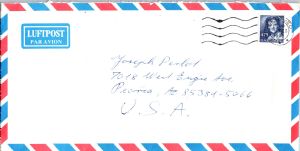 LUFTPOST
PAR AVION
Joseph
7018 West Eugie Ave.
Peoria, AZ 85381-5066
U.S.A.